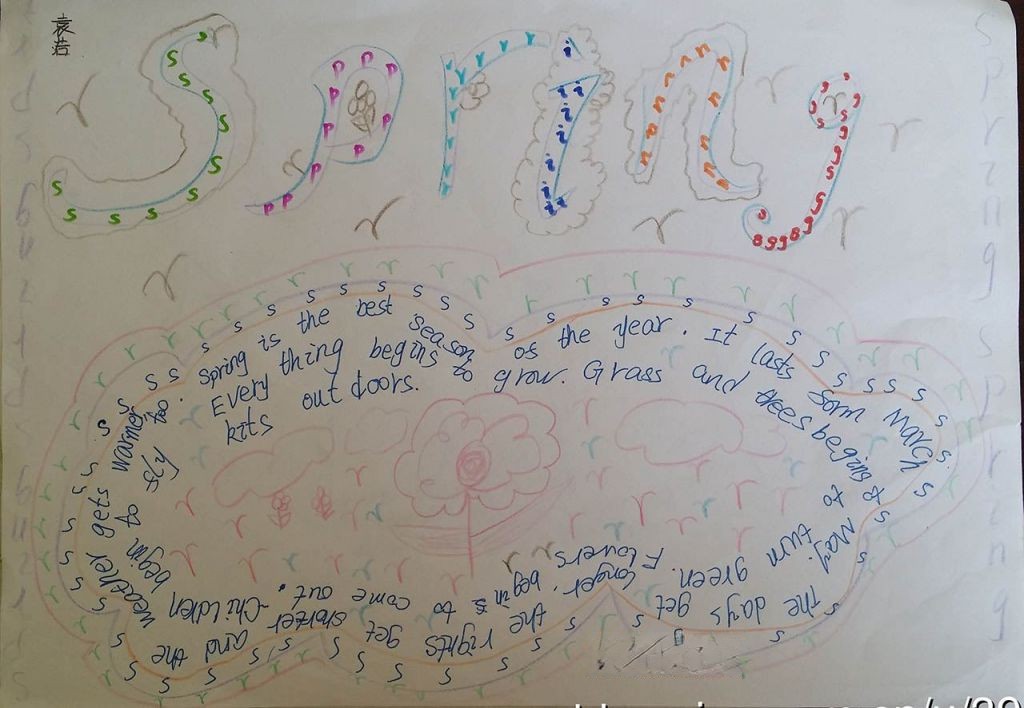 袁
Spring
Spring is the best season of the year. It lasts form March to May. The days get longer, the rights get shorter and the weather gets warmer too.
Every thing begins to grow. Grass and trees begins to turn green. Flowers begins to come out. Children begin to fly kits out doors.